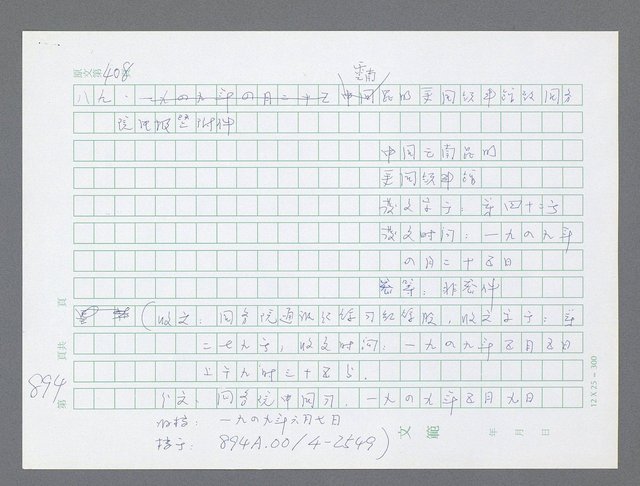 原文第408頁
雲南
八九．一九四九年四月二十五 中国昆明美国领事馆致国务
院电报暨附件
中国云南昆明
美国领事馆
发文字号：第四十二号
发文时间：一九四九年
四月二十五日
密等：非密件
(收文：国务院通讯纪录司纪录股．收文字号：第
二七九号，收文时间：一九四九年五月五日
上午九时三十五分．
分文：国务院中国司．一九四九年五月九日
归档：一九四九年六月七日
档号：894A.00/4-2549)
894
第 頁共 頁
範文
年 月 日
12 X 25 - 300